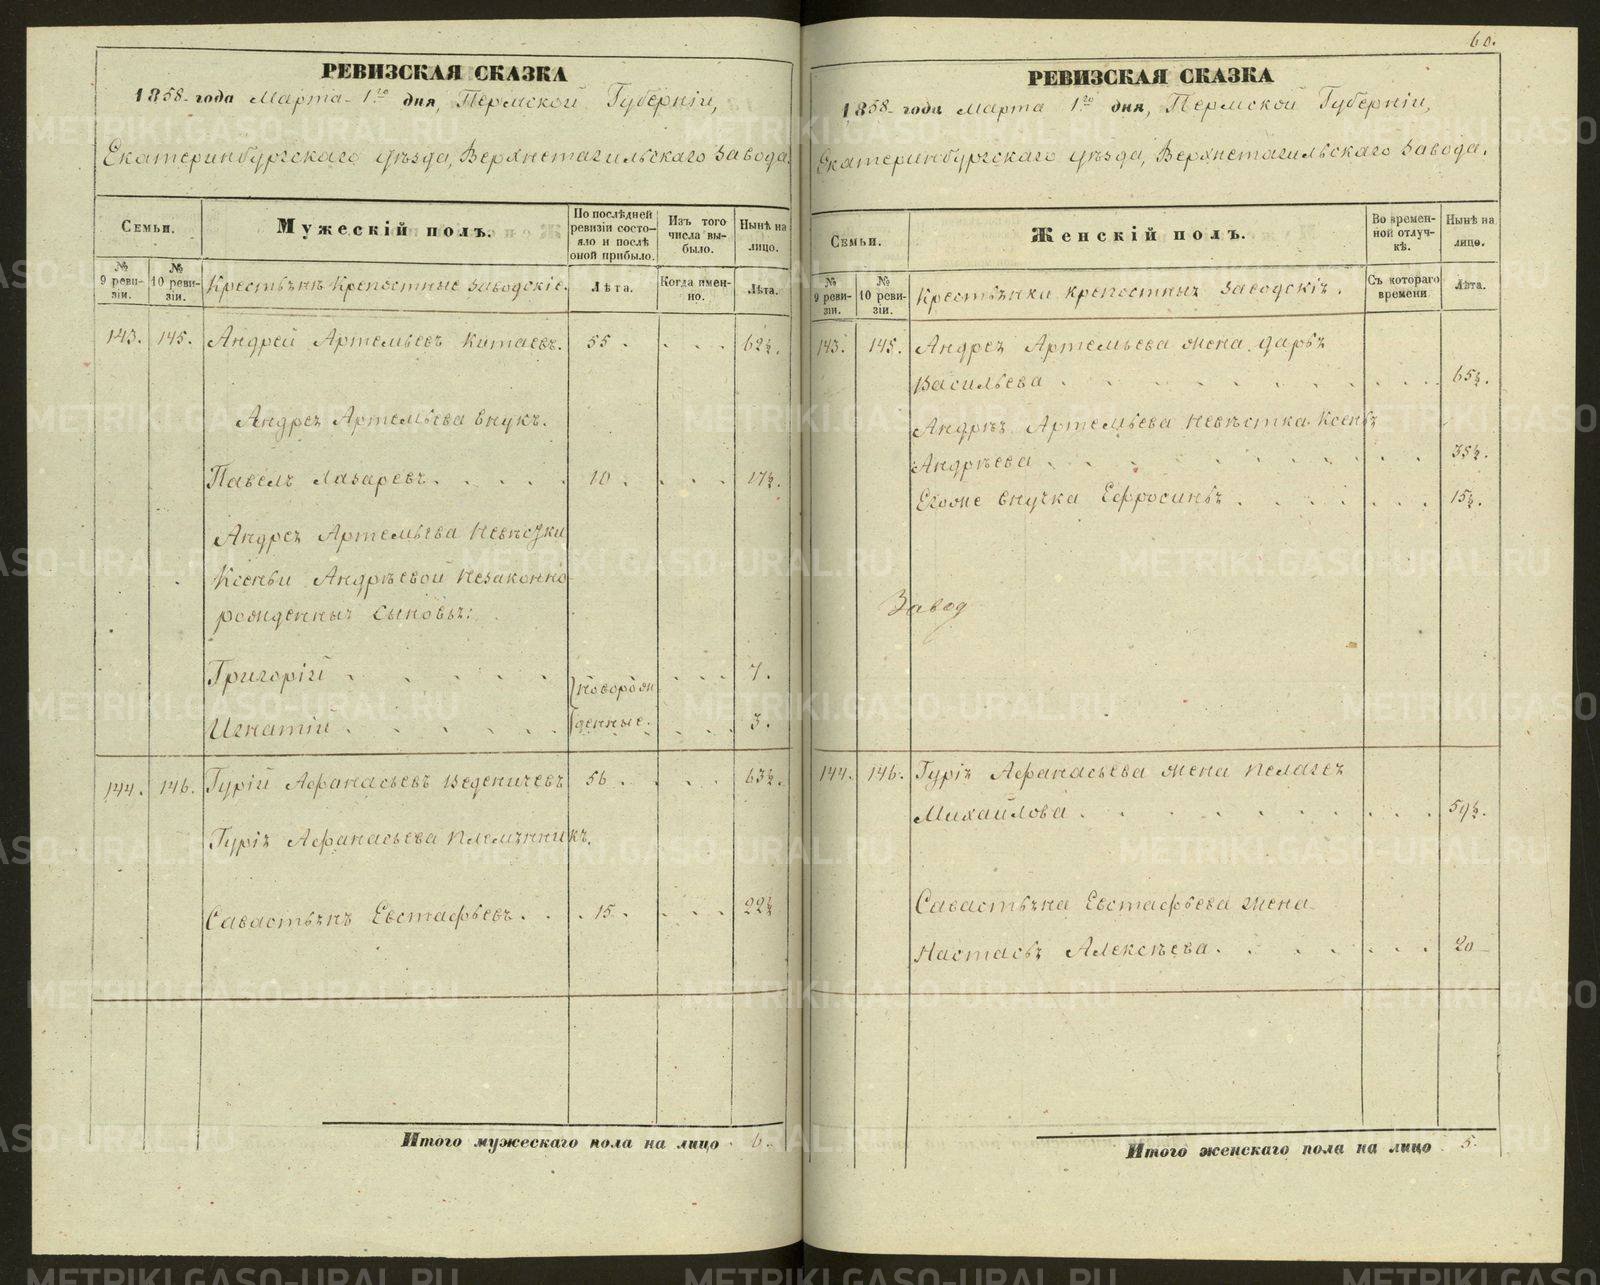 РЕВИЗСКАЯ СКАЗКА
1858 года Марта 1го дня, Пермской Губерніи,
Екатеринбургскаго уѣзда, Верхнетагильскаго Завода.
Семьи.
Мужескій полъ.
По послѣдней ревизіи состояло и послѣ оной прибыло.
Изъ того числа выбыло.
Нынѣ на лицо.
№ 9 ревизіи.
№ 10 ревизіи.
Крестьяне Крепостные Заводскіе.
Лѣта.
Когда именно.
Лѣта.
143. 145. Андрей Артемьевъ Китаевъ. 55. . . . 62½.
Андрея Артемьева внукъ.
Павелъ Лазаревъ. . . . . 10. . . . 17½.
Андрея Артемьева Невѣстки
Ксеньи Андрѣевой незаконно-
рожденныя сыновья:
Григорій . . . . . новорож . . . 7.
Игнатій . . . . . денные. . . . 3.
144. 146. Гурій Афанасьевъ Веденичевъ 56. . . . 63½.
Гурія Афанасьева племянникъ.
Савастьянъ Евстафьевъ. . . 15. . . . 22½
Итого мужескаго пола на лицо . 6.
60.
РЕВИЗСКАЯ СКАЗКА
1858 года Марта 1го дня, Пермской Губерніи,
Екатеринбургскаго уѣзда, Верхнетагильскаго Завода.
Семьи.
Женскій полъ.
Во временной отлучкѣ.
Нынѣ на лицо.
№ 9 ревизіи.
№ 10 ревизіи.
Крестьянки крепостныя Заводскія.
Съ котораго времени
Лѣта.
143. 145. Андрея Артемьева жена Дарья
Васильева . . . . . . . . 65½.
Андрѣя Артемьева невѣстка Ксенья
Андрѣева . . . . . . . . 35½.
Егоже внучка Ефросинья . . . . . . 15½.
Завод
144. 146. Гурія Афанасьева жена Пелагея
Михайлова . . . . . . . . 59½.
Савастьяна Евстафьева жена
Настасья Алексѣева. . . . . . . 20
Итого женскаго пола на лицо 5.
METRIKI.GASO-URAL.RU